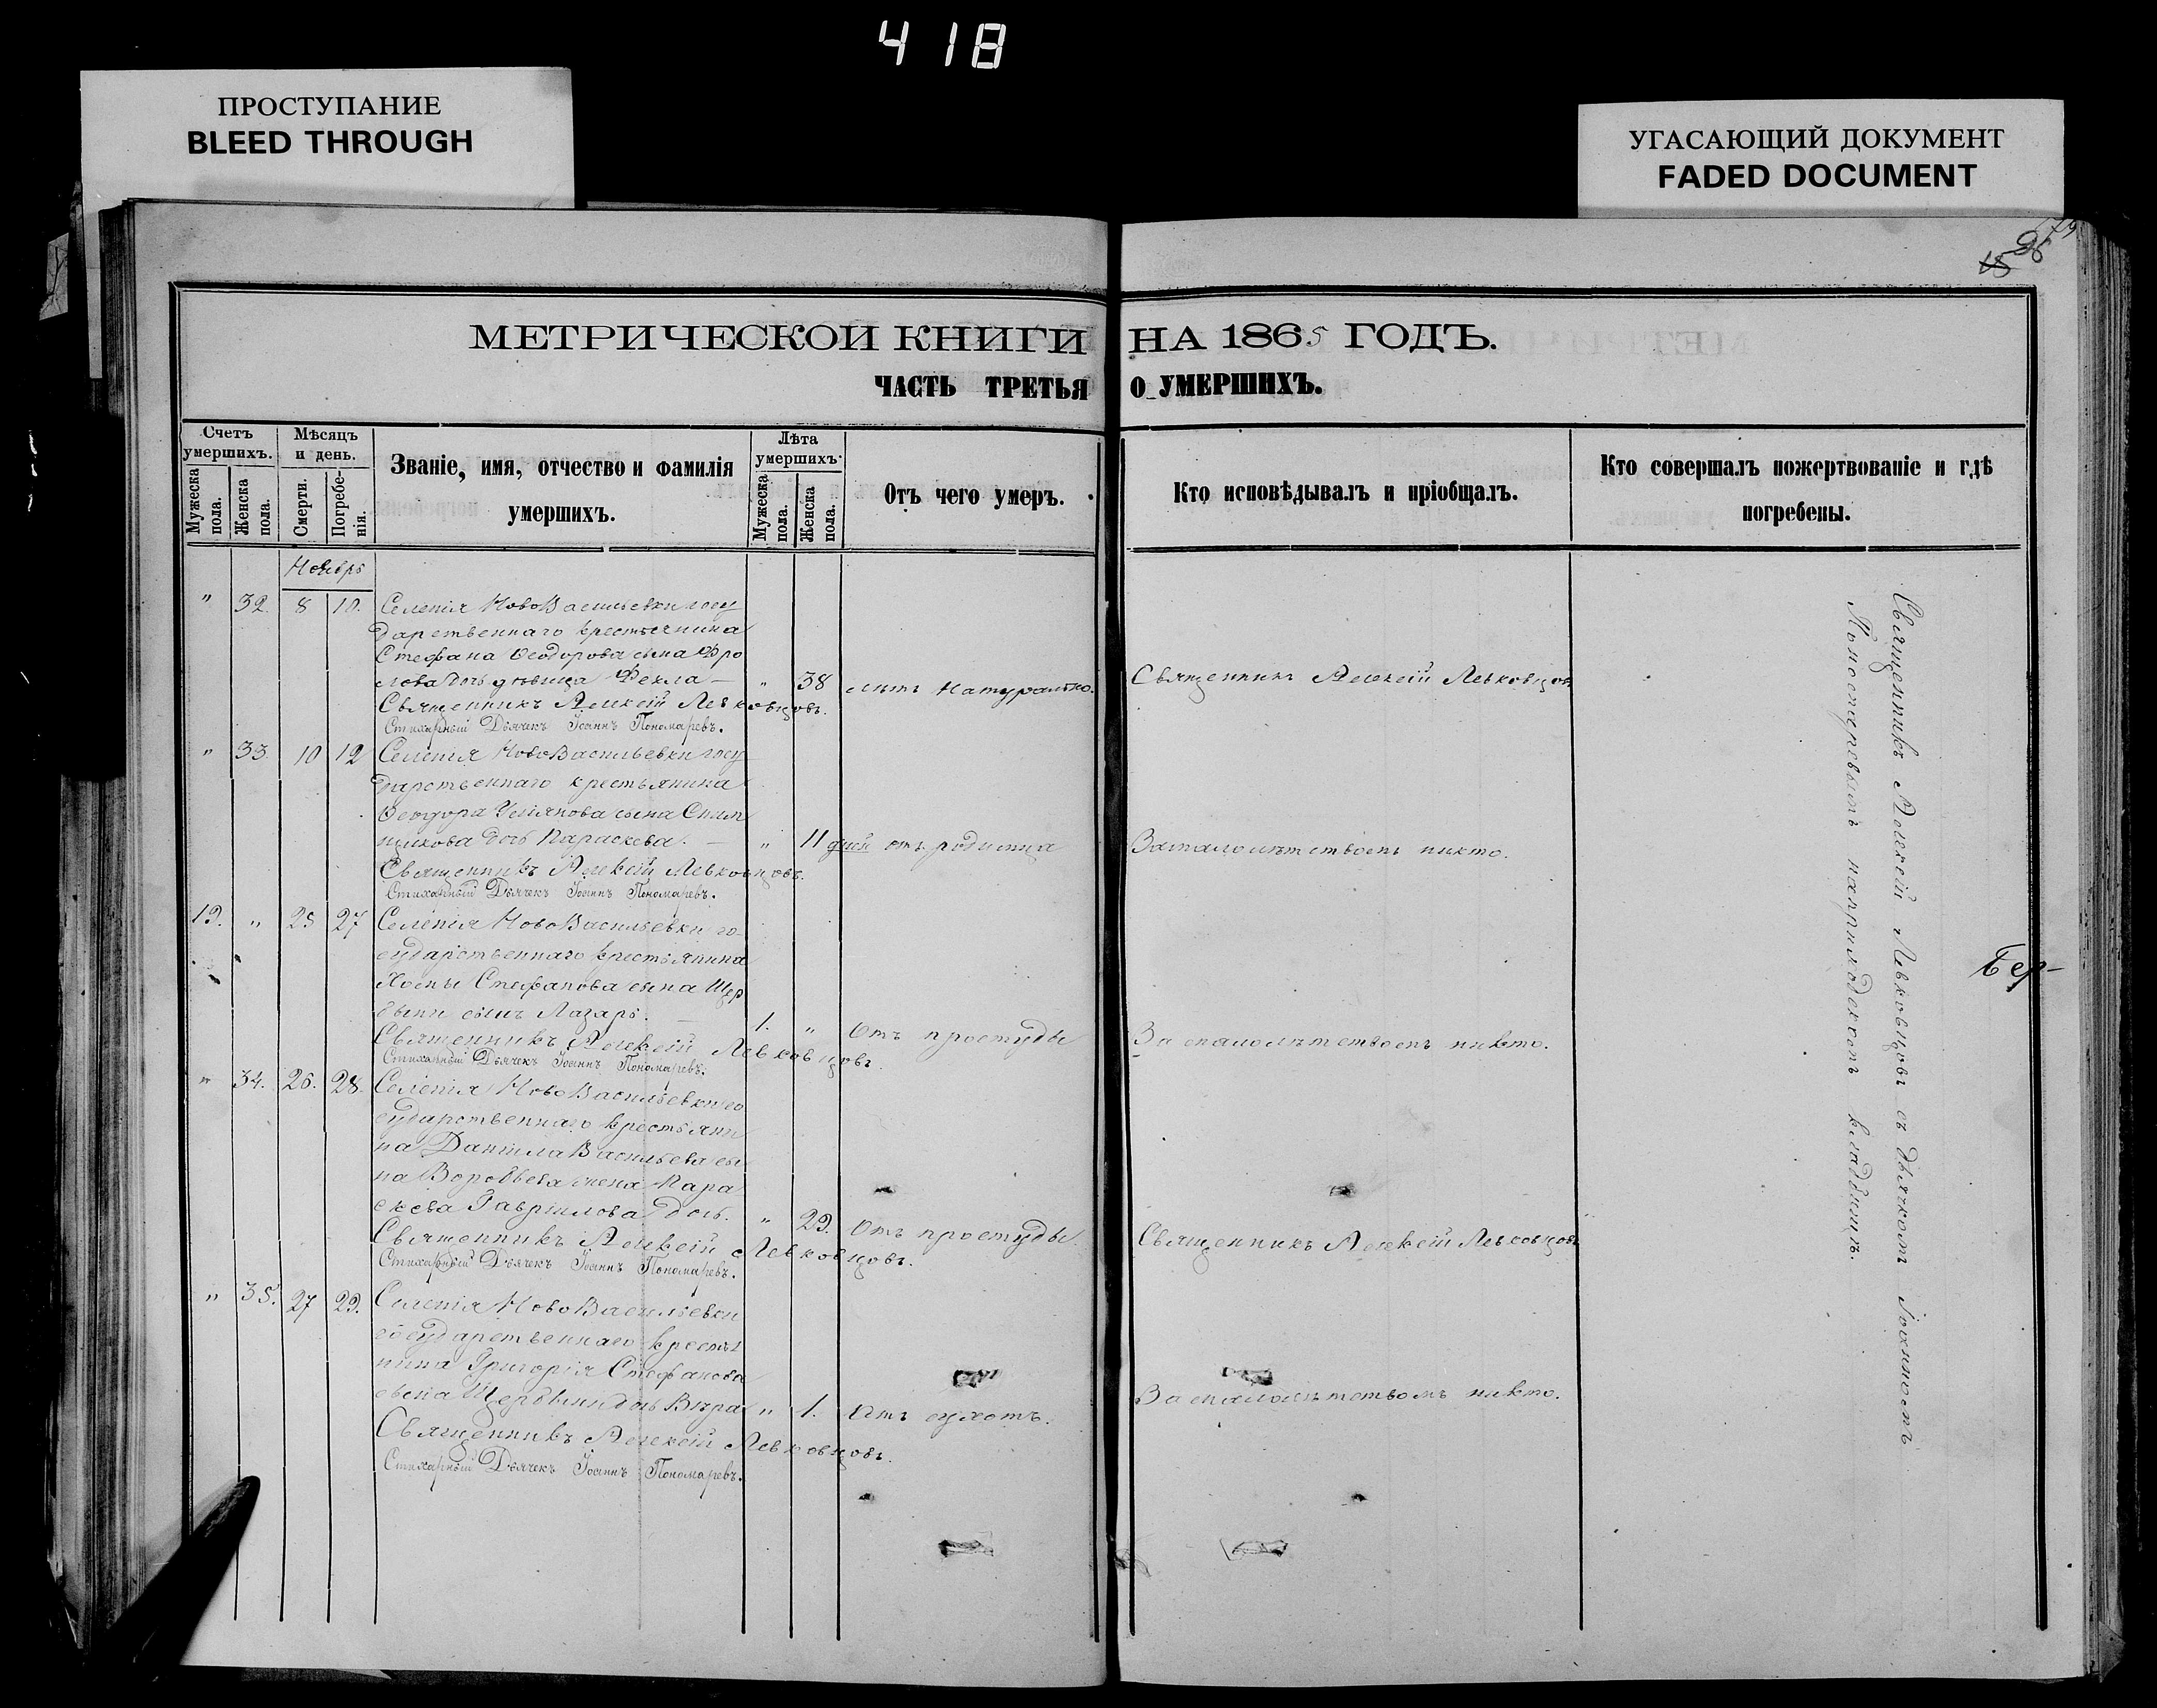 418
ПРОСТУПАНИЕ
BLEED THROUGH
УГАСАЮЩИЙ ДОКУМЕНТ
FADED DOCUMENT
96
МЕТРИЧЕСКОЙ КНИГИ НА 1865 ГОДЪ.
ЧАСТЬ ТРЕТЬЯ О УМЕРШИХЪ.
Счетъ умершихъ.
Мужеска пола.
Женска пола.
Мѣсяцъ и день.
Смерти.
Погребенія.
Званіе, имя, отчество и фамилія
умершихъ.
Лѣта умершихъ.
Мужеска пола.
Женска пола.
Отъ чего умеръ.
Кто исповѣдывалъ и пріобщалъ.
Кто совершалъ пожертвованіе и гдѣ
погребены.
Ноябрь
" 32. 8 10. Селенія НовоВасильевки госу
дарственнаго крестьянина
Стефана Ѳеодорова сына Фро
лова дочь дѣвица Фекла — " 38 лѣтъ Натурально. Священникъ Алексій Левковцовъ
Священникъ Алексій Левковцовъ.
Стихарный Дьячекъ Іоаннъ Пономаревъ.
" 33. 10 12 Селенія НовоВасильевки госу
дарственнаго крестьянина
Ѳеодора сына
дочь Параскева. — " 11 дней отъ родимца За малолѣтствомъ никто.
Священникъ Алексій Левковцовъ.
Стихарный Дьячекъ Іоаннъ Пономаревъ.
19. " 25 27 Селенія НовоВасильевки го
сударственнаго крестьянина
Стефанова сына Щер
бины сынъ Лазарь. — 1. " Отъ простуды За малолѣтствомъ никто.
Священникъ Алексій Левковцовъ.
Стихарный Дьячекъ Іоаннъ Пономаревъ.
" 34. 26. 28. Селенія НовоВасильевки го
сударственнаго крестьяни
на Даніила Васильева сы
на Воробьева жена Пара
скева Гаврилова дочь. " 29. Отъ простуды. Священникъ Алексій Левковцовъ
Священникъ Алексій Левковцовъ.
Стихарный Дьячекъ Іоаннъ Пономаревъ.
" 35. 27 29. Селенія НовоВасильевки
государственнаго крестья
нина Григорія Стефанова
сына Щербины дочь Вѣра " 1. Отъ сухотъ. За малолѣтствомъ никто.
Священникъ Алексій Левковцовъ.
Стихарный Дьячекъ Іоаннъ Пономаревъ.
Священникъ Алексій Левковцовъ съ дьячкомъ Іоанномъ
Пономаревымъ на приходскомъ кладбищѣ.
Бер-